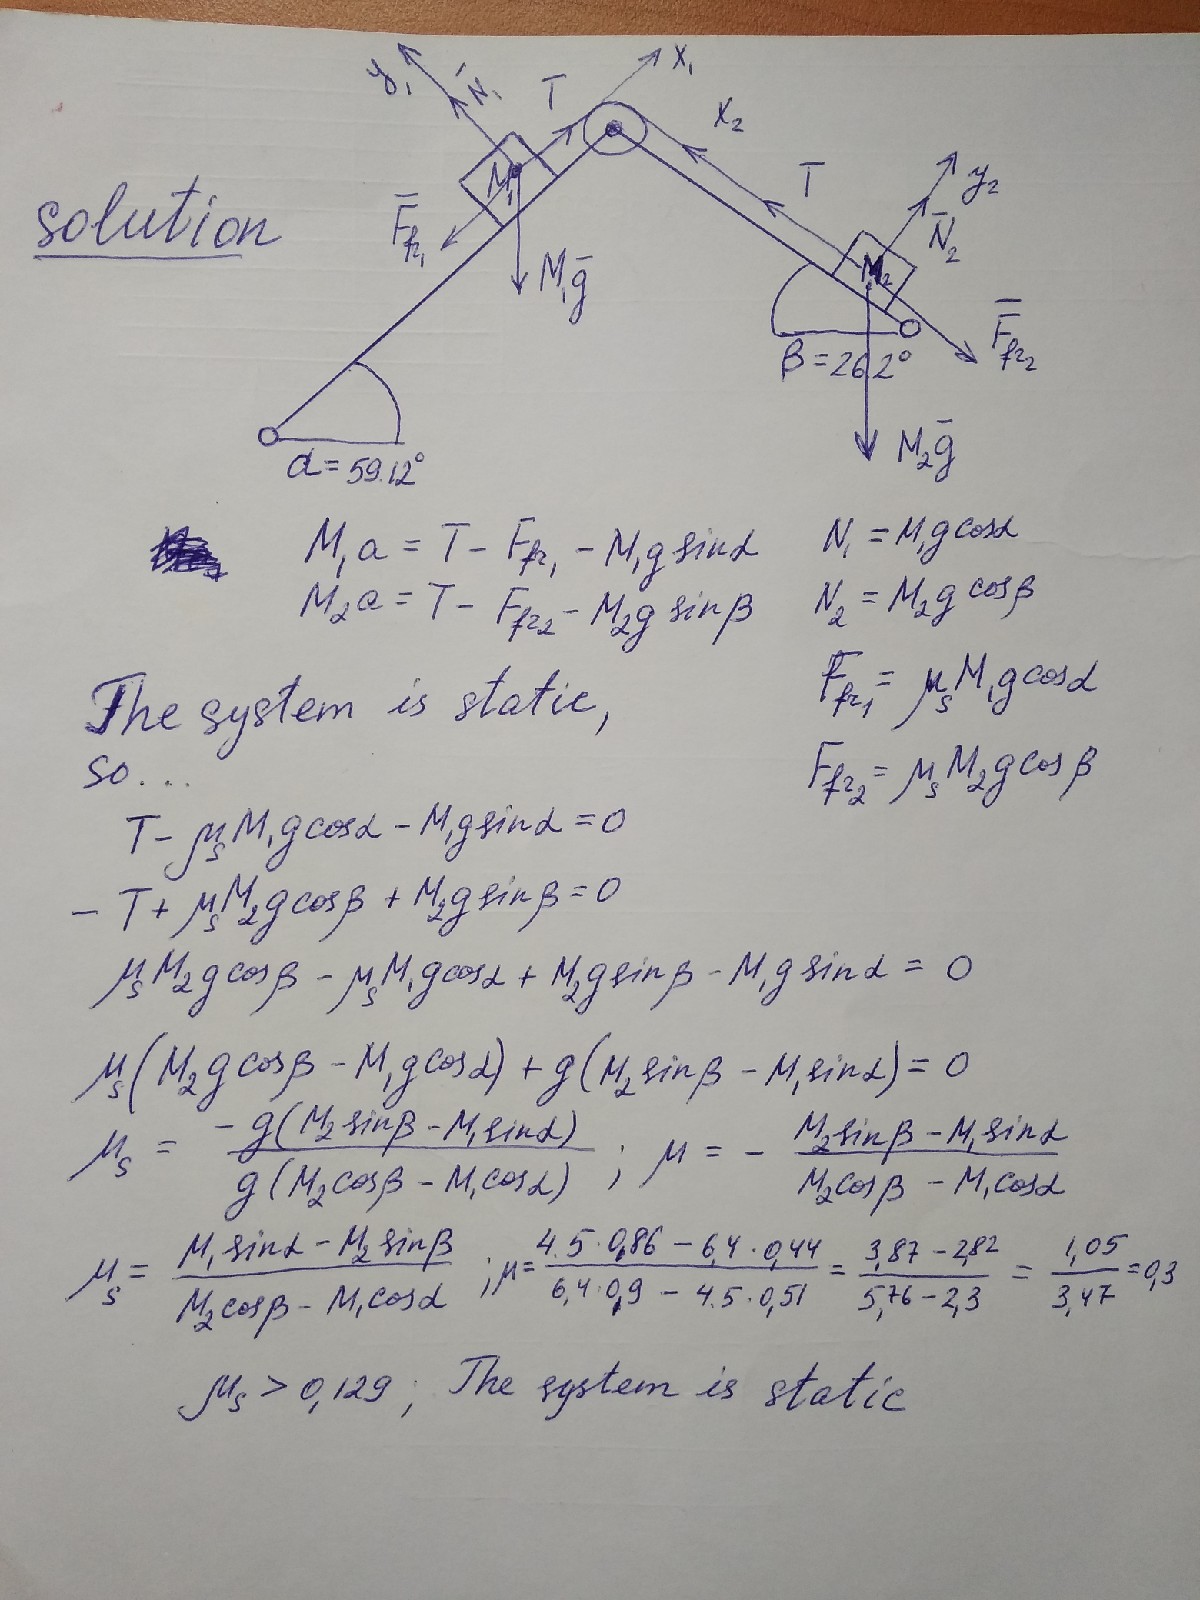 y₁ N̄₁ T x₁
x₂
M₁ T y₂
solution F̄fr₁ N̄₂
M₁ḡ M₂ F̄fr₂
β=26.2°
M₂ḡ
α=59.12°
M₁a = T - Ffr₁ - M₁g sinα N₁ = M₁g cosα
M₂a = T - Ffr₂ - M₂g sinβ N₂ = M₂g cosβ
The system is static, Ffr₁ = μₛM₁g cosα
so... Ffr₂ = μₛM₂g cosβ
T - μₛM₁g cosα - M₁g sinα = 0
- T + μₛM₂g cosβ + M₂g sinβ = 0
μₛM₂g cosβ - μₛM₁g cosα + M₂g sinβ - M₁g sinα = 0
μₛ(M₂g cosβ - M₁g cosα) + g(M₂sinβ - M₁sinα) = 0
μₛ = -g(M₂sinβ - M₁sinα) / g(M₂cosβ - M₁cosα) ; μ = - M₂sinβ - M₁sinα / M₂cosβ - M₁cosα
μₛ = M₁sinα - M₂sinβ / M₂cosβ - M₁cosα ; μ = 4.5·0,86 - 6,4·0,44 / 6,4·0,9 - 4.5·0,51 = 3,87 - 2,82 / 5,76 - 2,3 = 1,05 / 3,47 = 0,3
μₛ > 0,129 ; The system is static